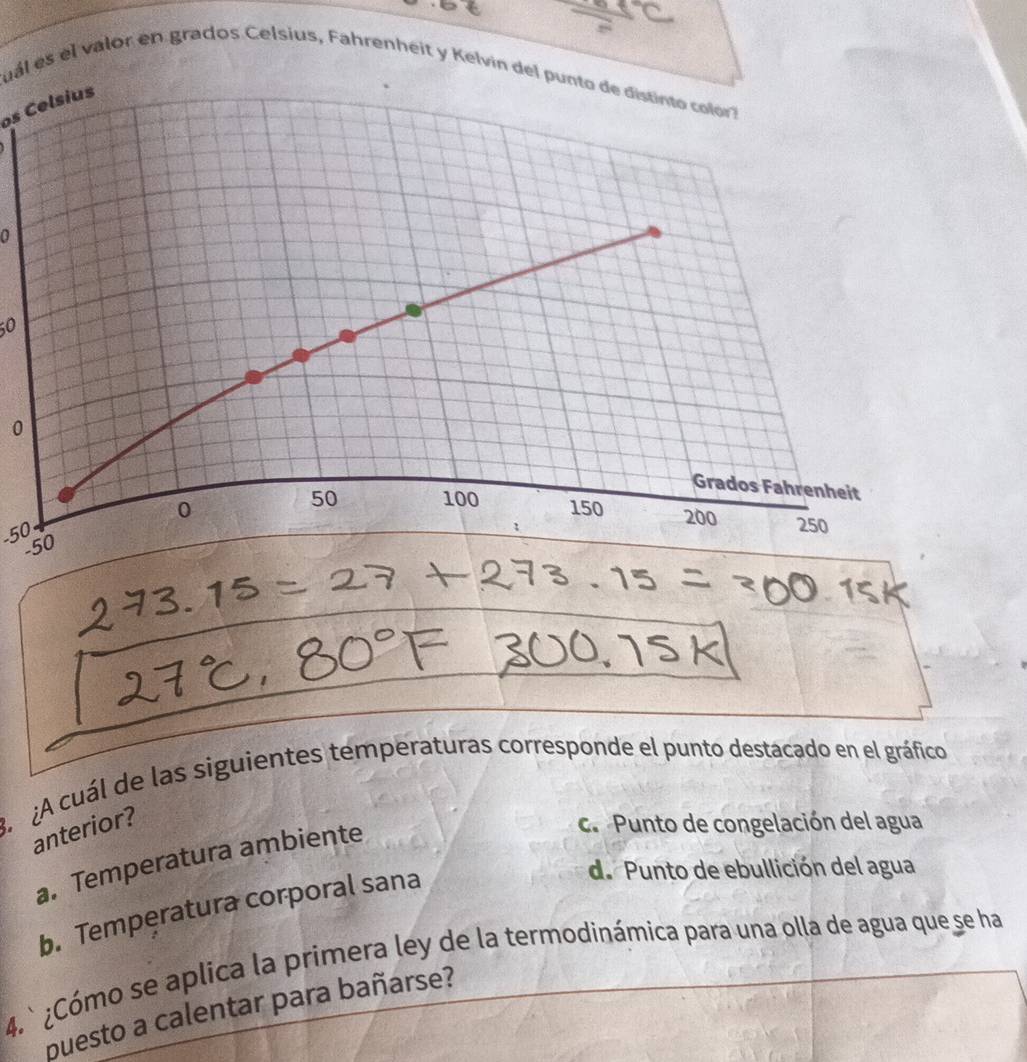 es el valor en grados Celsius, Fahrenheit y Kelvin del punto de distinto color?
Celsius
0
50
0
-50
-50 0 50 100 150 200 250
Grados Fahrenheit
273.15 = 27 + 273.15 = 300.15K
27°C, 80°F 300.15K
3. ¿A cuál de las siguientes temperaturas corresponde el punto destacado en el gráfico
anterior?
a. Temperatura ambiente
b. Temperatura corporal sana
c. Punto de congelación del agua
d. Punto de ebullición del agua
4. ¿Cómo se aplica la primera ley de la termodinámica para una olla de agua que se ha
puesto a calentar para bañarse?